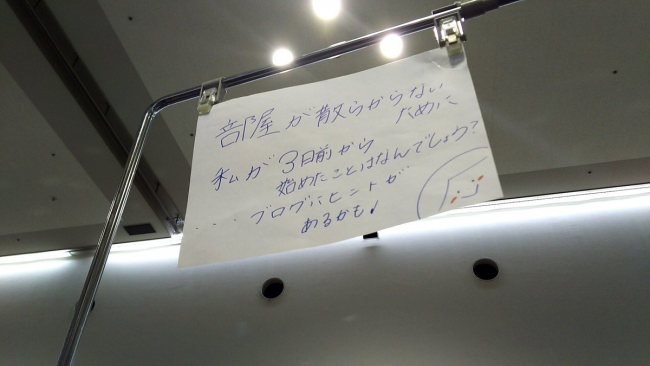 部屋が散らからない
ために
私が3日前から
始めたことはなんでしょう?
...ブログにヒントが
あるかも!